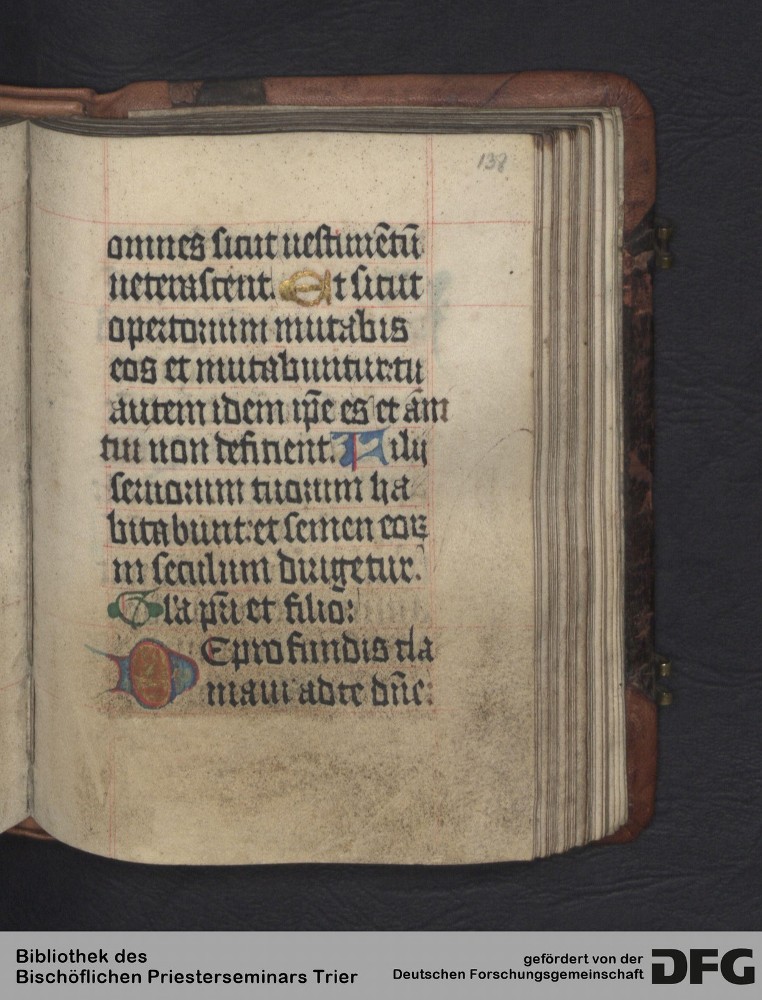 138
omnes sicut uestimētū
ueterascent. Et sicut
opertorium mutabis
eos et mutabuntur: tu
autem idem ip̄e es et ām
tui non deficient. Filij
seruorum tuorum ha
bitabunt: et semen eoꝝ
in seculum dirigetur.
Gl'a pr̄i et filio:
De profundis cla
maui ad te dn̄e:
Bibliothek des
Bischöflichen Priesterseminars Trier
gefördert von der
Deutschen Forschungsgemeinschaft
DFG